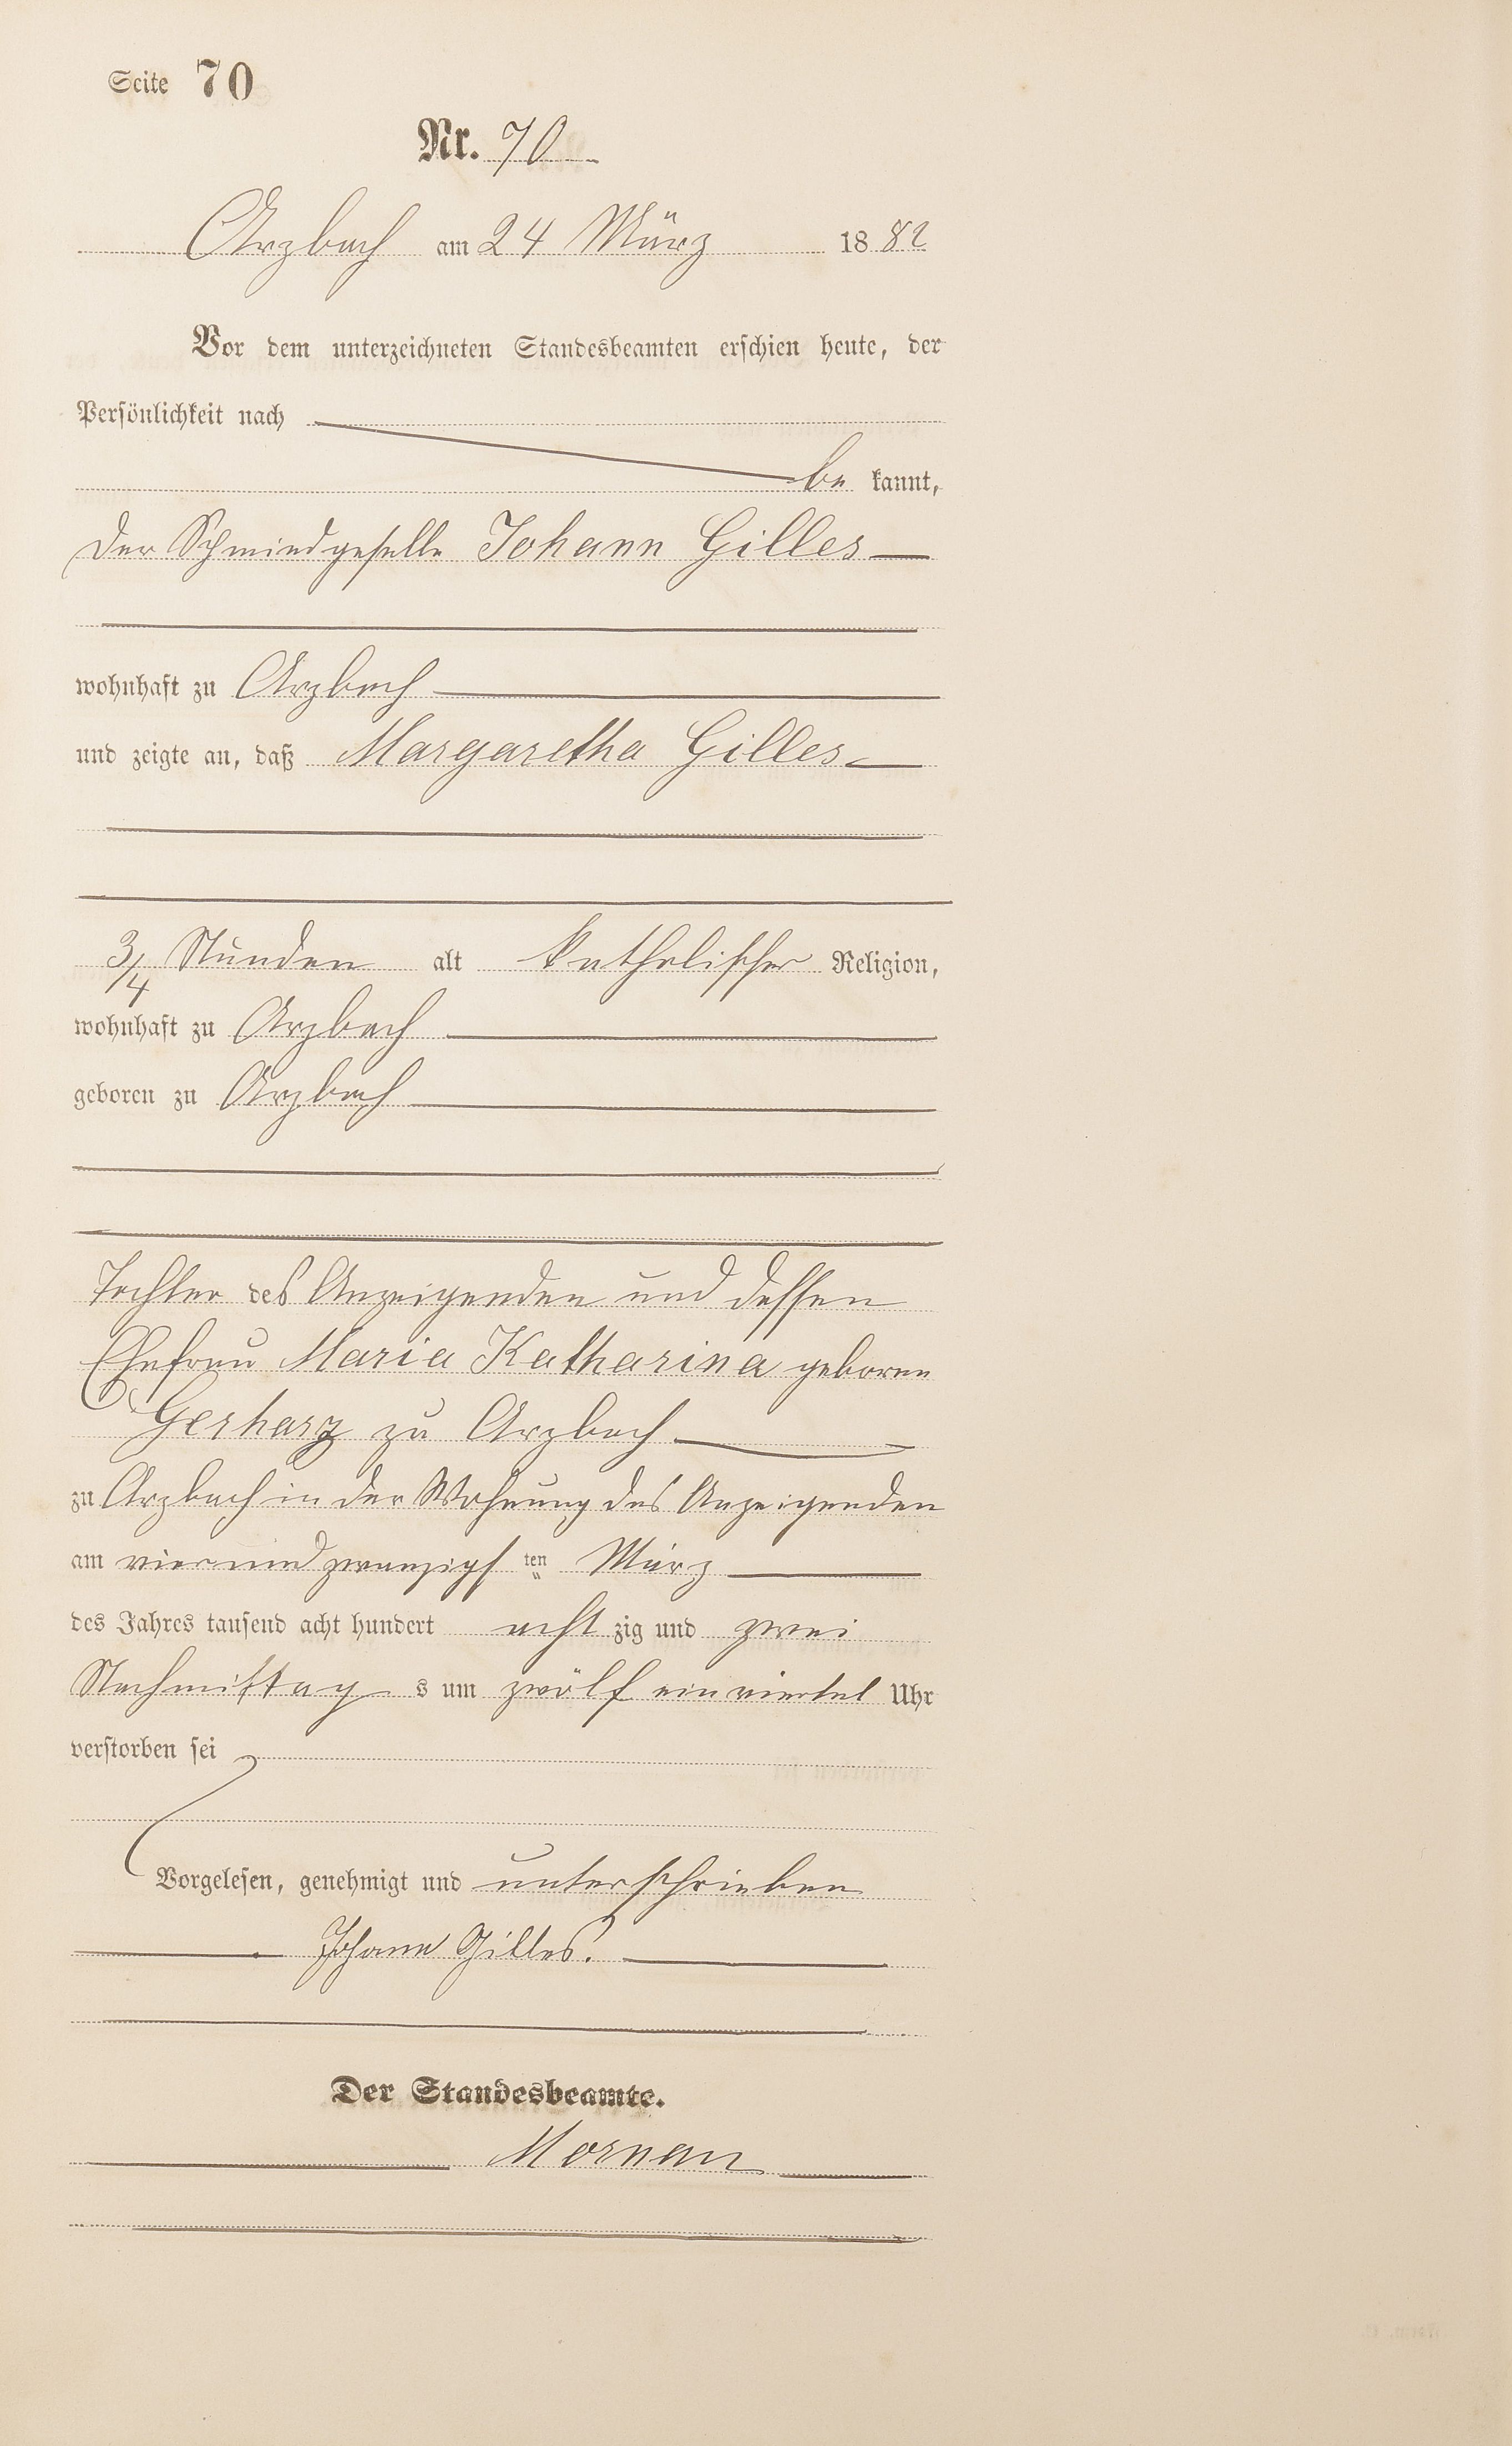 Seite 70
Nr. 70
Arzbach am 24 März 1882
Vor dem unterzeichneten Standesbeamten erschien heute, der
Persönlichkeit nach
be kannt,
der Schmiedgeselle Johann Gilles
wohnhaft zu Arzbach
und zeigte an, daß Margaretha Gilles
3/4 Stunden alt katholischer Religion,
wohnhaft zu Arzbach
geboren zu Arzbach
Tochter des Anzeigenden und dessen
Ehefrau Maria Katharina geboren
Gerharz zu Arzbach
zu Arzbach in der Wohnung des Anzeigenden
am vierundzwanzigsten März
des Jahres tausend acht hundert achtzig und zwei
Nachmittags um zwölf ein viertel Uhr
verstorben sei
Vorgelesen, genehmigt und unterschrieben
Johann Gilles.
Der Standesbeamte.